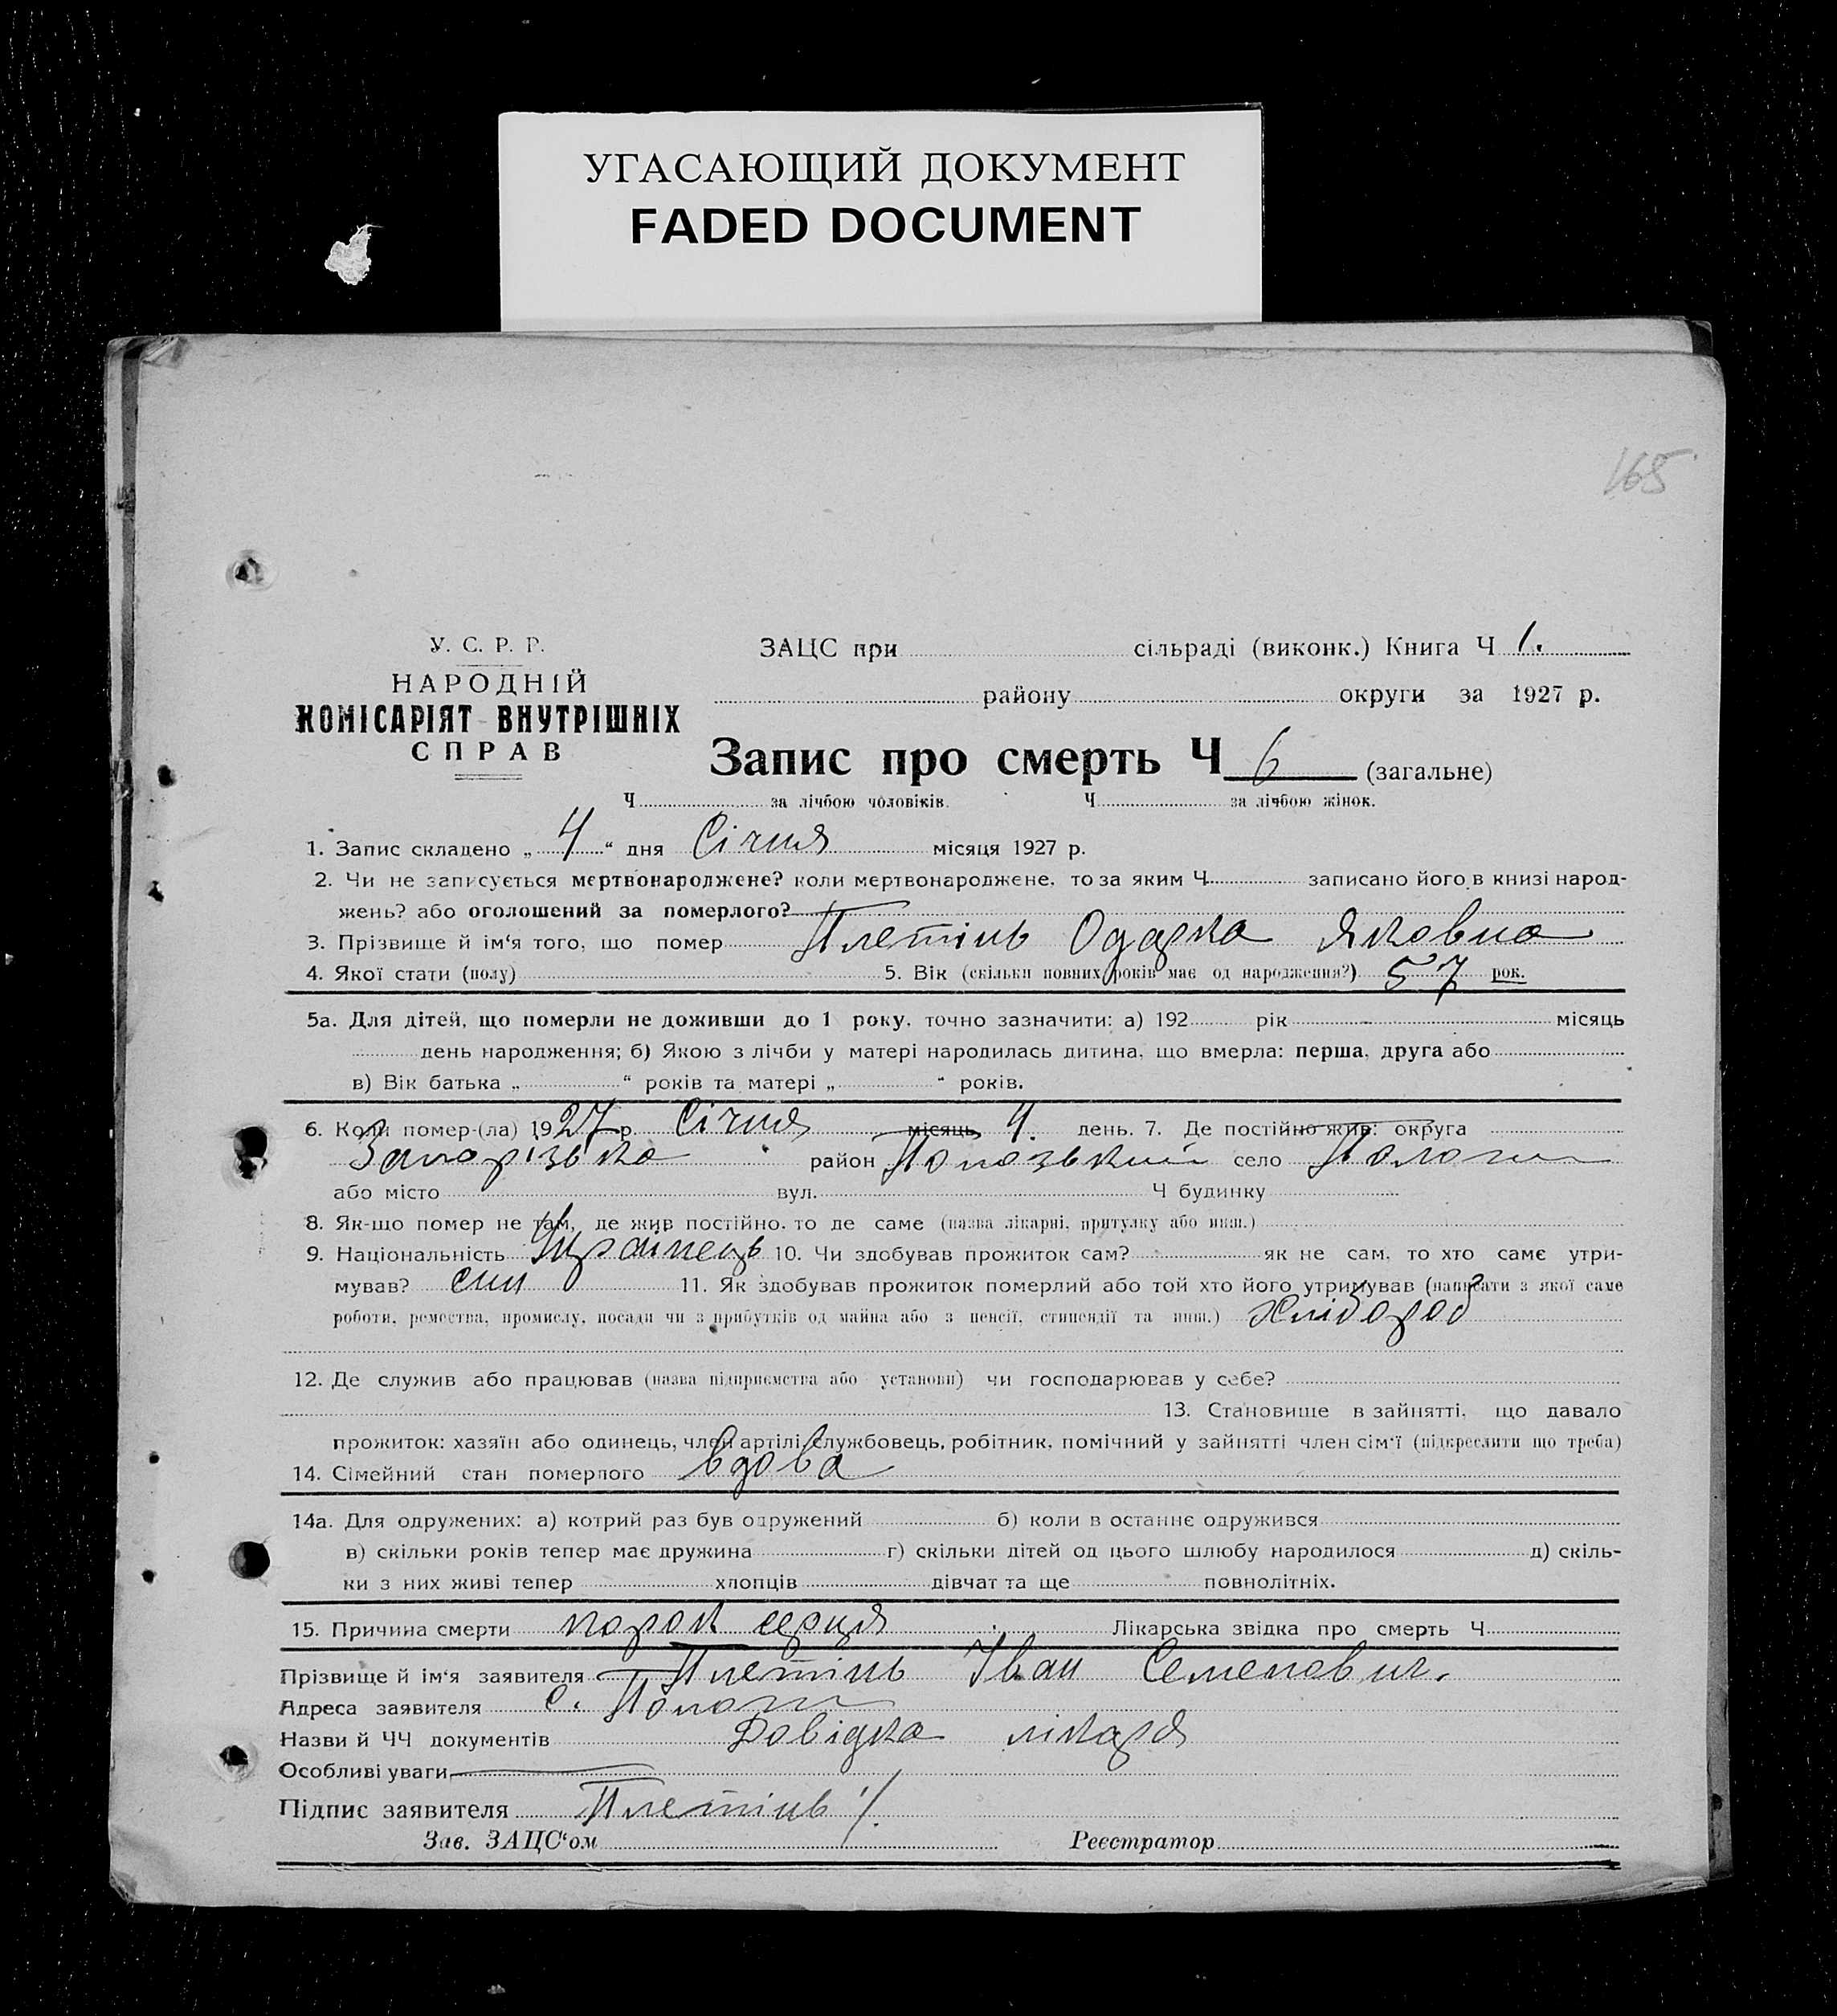 УГАСАЮЩИЙ ДОКУМЕНТ
FADED DOCUMENT
165
У. С. Р. Р.
НАРОДНІЙ
КОМІСАРІЯТ ВНУТРІШНІХ
СПРАВ
ЗАЦС при сільраді (виконк.) Книга Ч 1.
району округи за 1927 р.
Запис про смерть Ч 6 (загальне)
Ч за лічбою чоловіків. Ч за лічбою жінок.
1. Запис складено „ 4 “ дня Січня місяця 1927 р.
2. Чи не записується мертвонароджене? коли мертвонароджене, то за яким Ч записано його в книзі народ-
жень? або оголошений за померлого?
3. Прізвище й ім‘я того, що помер Плетінь Одарка Яковна
4. Якої стати (полу) 5. Вік (скільки повних років має од народження?) 57 рок.
5а. Для дітей, що померли не доживши до 1 року, точно зазначити: а) 192 рік місяць
день народження; б) Якою з лічби у матері народилась дитина, що вмерла: перша, друга або
в) Вік батька „ “ років та матері „ “ років.
6. Коли помер-(ла) 1927 р. Січня місяць 4. день. 7. Де постійно жив: округа
Запорізька район Пологзький село Пологи
або місто вул. Ч будинку
8. Як-що помер не там, де жив постійно, то де саме (назва лікарні, притулку або инш.)
9. Національність Українець 10. Чи здобував прожиток сам? як не сам, то хто саме утри-
мував? син 11. Як здобував прожиток померлий або той хто його утримував (написати з якої саме
роботи, ремества, промислу, посади чи з прибутків од майна або з пенсії, стипендії та инш.) Хлібороб
12. Де служив або працював (назва підприємства або установи) чи господарював у себе?
13. Становище в зайнятті, що давало
прожиток: хазяїн або одинець, член артілі, службовець, робітник, помічний у зайнятті член сім‘ї (підкреслити що треба)
14. Сімейний стан померлого вдова
14а. Для одружених: а) котрий раз був одружений б) коли в останнє одружився
в) скільки років тепер має дружина г) скільки дітей од цього шлюбу народилося д) скіль-
ки з них живі тепер хлопців дівчат та ще повнолітніх.
15. Причина смерти порок серця Лікарська звідка про смерть Ч
Прізвище й ім‘я заявителя Плетінь Іван Семенович.
Адреса заявителя с. Пологи
Назви й ЧЧ документів Довідка лікаря
Особливі уваги
Підпис заявителя Плетінь
Зав. ЗАЦС‘ом Реєстратор